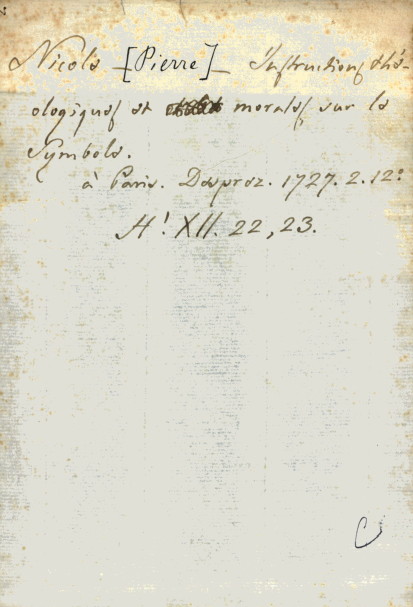 Nicole [Pierre] Instructions thé-
ologiques et morales sur le
Symbole.
à Paris. Desprez. 1727. 2. 12º
H! XII. 22, 23.
C